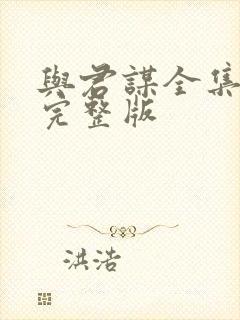 與君謀全集
完整版
洪浩